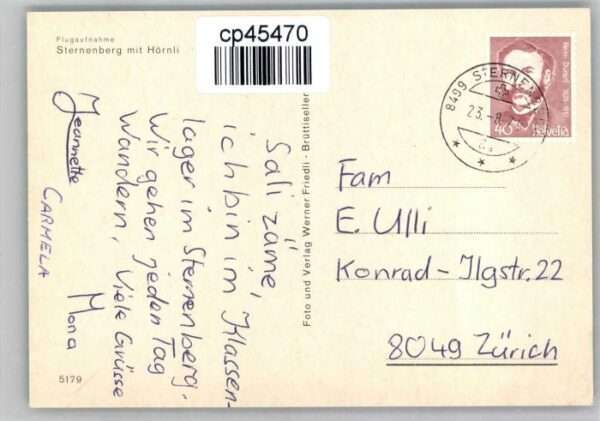 Flugaufnahme
Sternenberg mit Hörnli
cp45470
Foto und Verlag Werner Friedli - Brüttiseller
8499 STERNENB
23.-8.
40 Helvetia
Sali zäme,
ich bin im Klassen-
lager im Sternenberg.
Wir gehen jeden Tag
Wandern, Viele Grüsse
Jeannette
CARMELA
Mona
Fam
E. Ulli
Konrad-Ilgstr. 22
8049 Zürich
5179